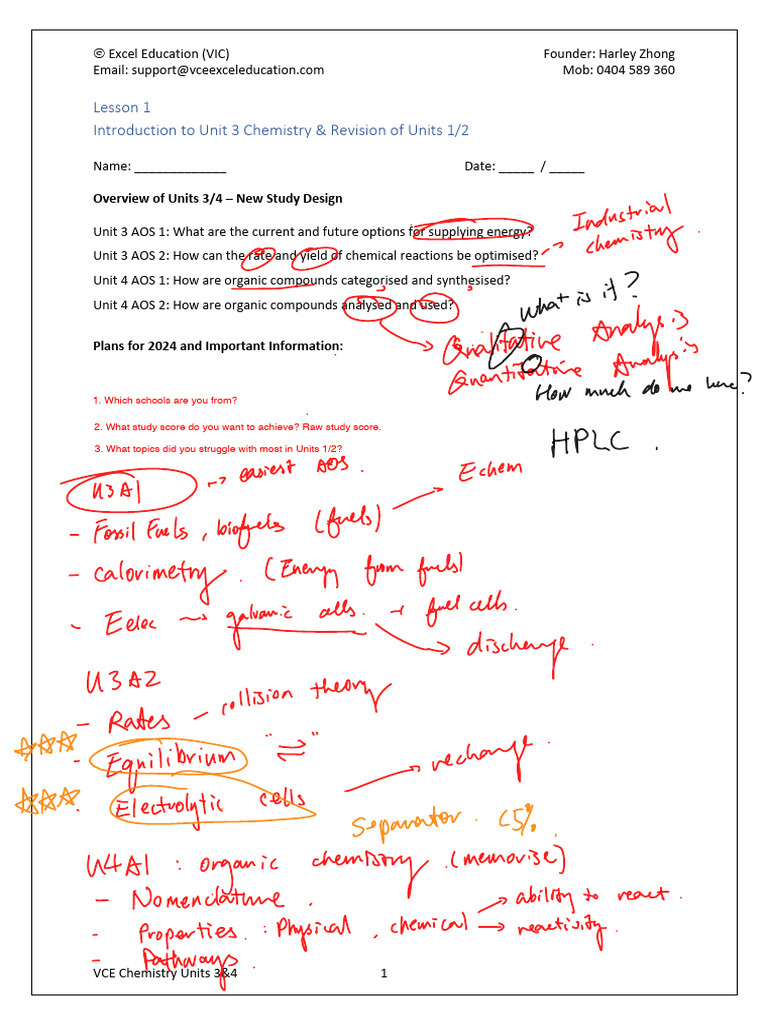 © Excel Education (VIC) Founder: Harley Zhong
Email: support@vceexceleducation.com Mob: 0404 589 360
Lesson 1
Introduction to Unit 3 Chemistry & Revision of Units 1/2
Name: _____________ Date: _____ / _____
Overview of Units 3/4 – New Study Design
Unit 3 AOS 1: What are the current and future options for supplying energy?
Unit 3 AOS 2: How can the rate and yield of chemical reactions be optimised?
Industrial
chemistry.
Unit 4 AOS 1: How are organic compounds categorised and synthesised?
Unit 4 AOS 2: How are organic compounds analysed and used?
What is it?
Qualitative Analysis
Quantitative Analysis
How much do we have?
Plans for 2024 and Important Information:
1. Which schools are you from?
2. What study score do you want to achieve? Raw study score.
3. What topics did you struggle with most in Units 1/2?
HPLC.
U3A1 → easiest AOS.
- Fossil Fuels, biofuels (fuels) → Echem
- Calorimetry. (Energy from fuels)
- Eelec → galvanic cells. + fuel cells.
discharge.
U3A2
- Rates - collision theory
- Equilibrium "⇌"
Electrolytic cells → recharge.
Separator. <5%.
U4A1 : organic chemistry. (memorise)
- Nomenclature.
- Properties. : Physical, chemical → ability to react.
→ reactivity.
- Pathways.
VCE Chemistry Units 3&4 1